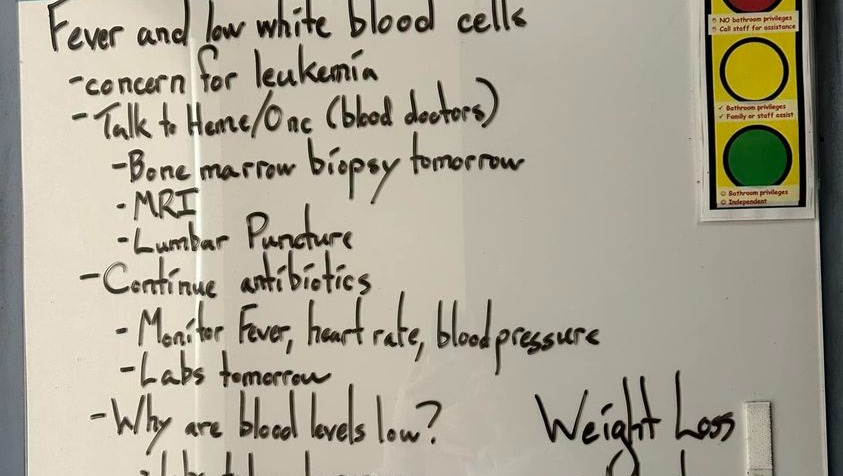 Fever and low white blood cells
-concern for leukemia
-Talk to Heme/Onc (blood doctors)
-Bone marrow biopsy tomorrow
-MRI
-Lumbar Puncture
-Continue antibiotics
-Monitor Fever, heart rate, blood pressure
-Labs tomorrow
-Why are blood levels low?
Weight Loss
NO bathroom privileges
Call staff for assistance
✓ Bathroom privileges
✓ Family or staff assist
☺ Bathroom privileges
☺ Independent